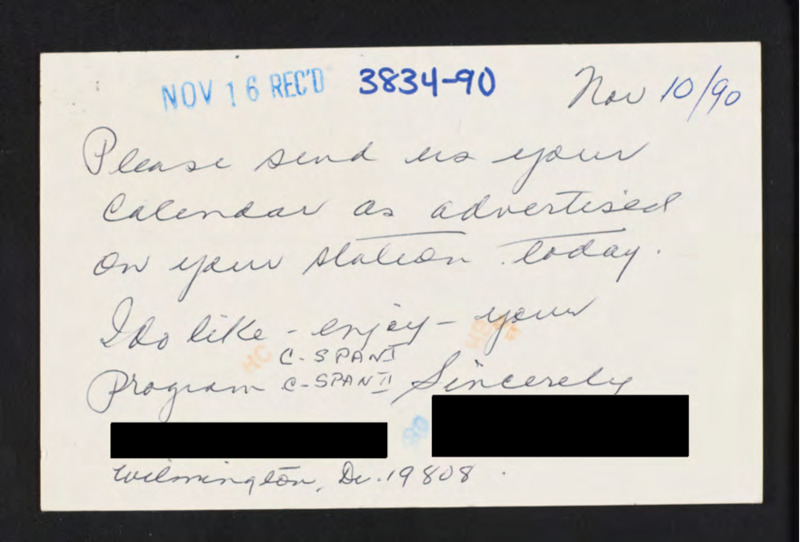 NOV 16 REC'D 3834-90 Nov 10/90
Please send us your
Calendar as advertised
on your station today.
I do like - enjoy - your
C-SPAN I
Program C-SPAN II Sincerely
Wilmington, De. 19808